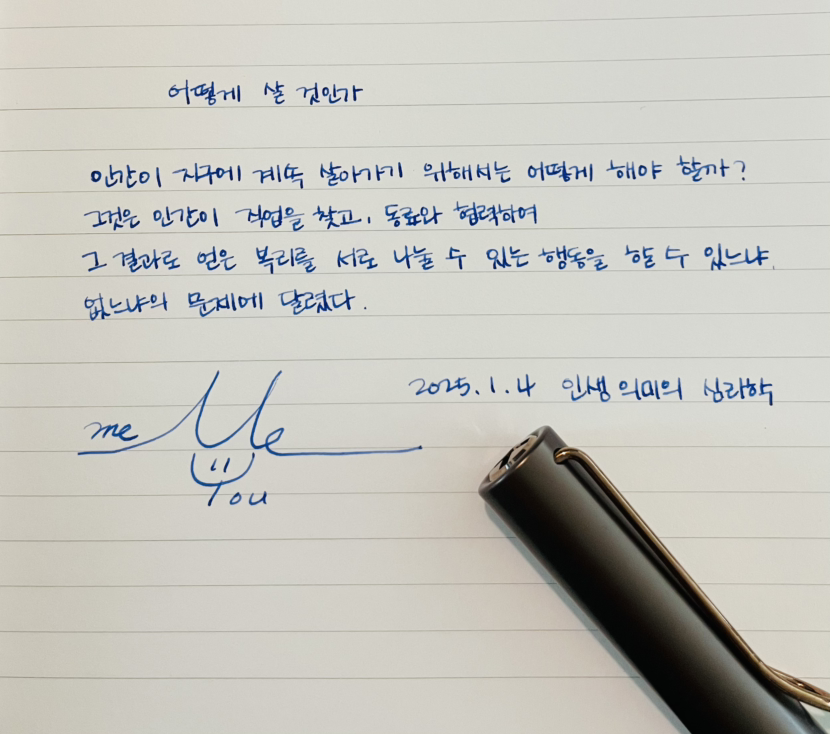 어떻게 살 것인가
인간이 지구에 계속 살아가기 위해서는 어떻게 해야 할까?
그것은 인간이 직업을 찾고, 동료와 협력하여
그 결과로 얻은 복리를 서로 나눌 수 있는 행동을 할 수 있느냐,
없느냐의 문제에 달렸다.
2025.1.4 인생 의미의 심리학
me
Me
You